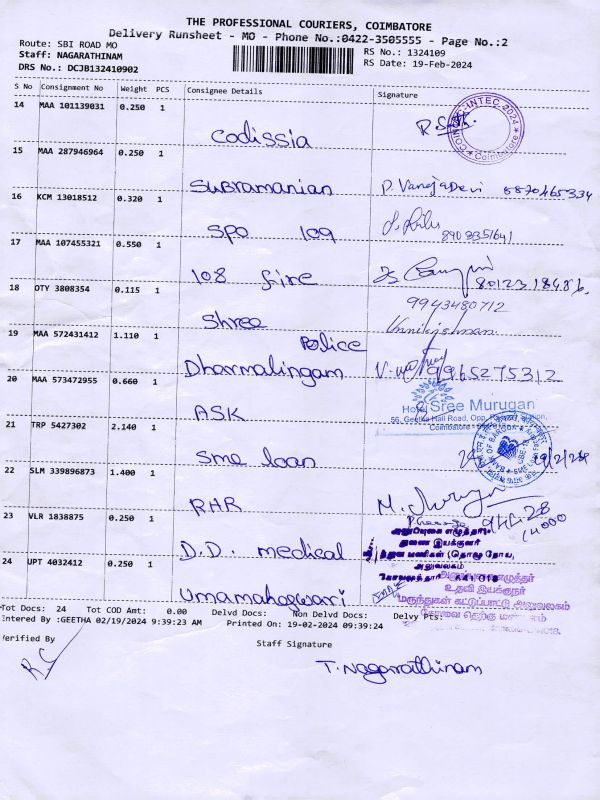 THE PROFESSIONAL COURIERS, COIMBATORE
Delivery Runsheet - MO - Phone No.:0422-3505555 - Page No.:2
Route: SBI ROAD MO
RS No.: 1324109
Staff: NAGARATHINAM
RS Date: 19-Feb-2024
DRS No.: DCJB132410902
S No Consignment No Weight PCS Consignee Details Signature
14 MAA 101139031 0.250 1
INTEC 2024
Coimbatore
Codissia
15 MAA 287946964 0.250 1
Subramanian P. Vanejadevi
16 KCM 13018512 0.320 1
SPO 109
8903351641
17 MAA 107455321 0.550 1
108 fire
18 OTY 3808354 0.115 1
9943480712
Shree
Unnikrishnan
19 MAA 572431412 1.110 1
Police
Dharmalingam 9965275312
20 MAA 573472955 0.660 1
Hotel Sree Murugan
ASK
56, Geetha Hall Road, Opp. Railway Station,
Coimbatore
21 TRP 5427302 2.140 1
Sme loan
22 SLM 339896873 1.400 1
RHR
23 VLR 1838875 0.250 1
D.D. medical
அலுவலகம்
24 UPT 4032412 0.250 1
உதவி இயக்குநர்
Umamaheswari
மருந்துகள் கட்டுப்பாட்டு அலுவலகம்
Tot Docs: 24 Tot COD Amt: 0.00 Delvd Docs: Non Delvd Docs: Delvy Pts:
Entered By :GEETHA 02/19/2024 9:39:23 AM Printed On: 19-02-2024 09:39:24
Verified By
Staff Signature
T. Nagarathinam